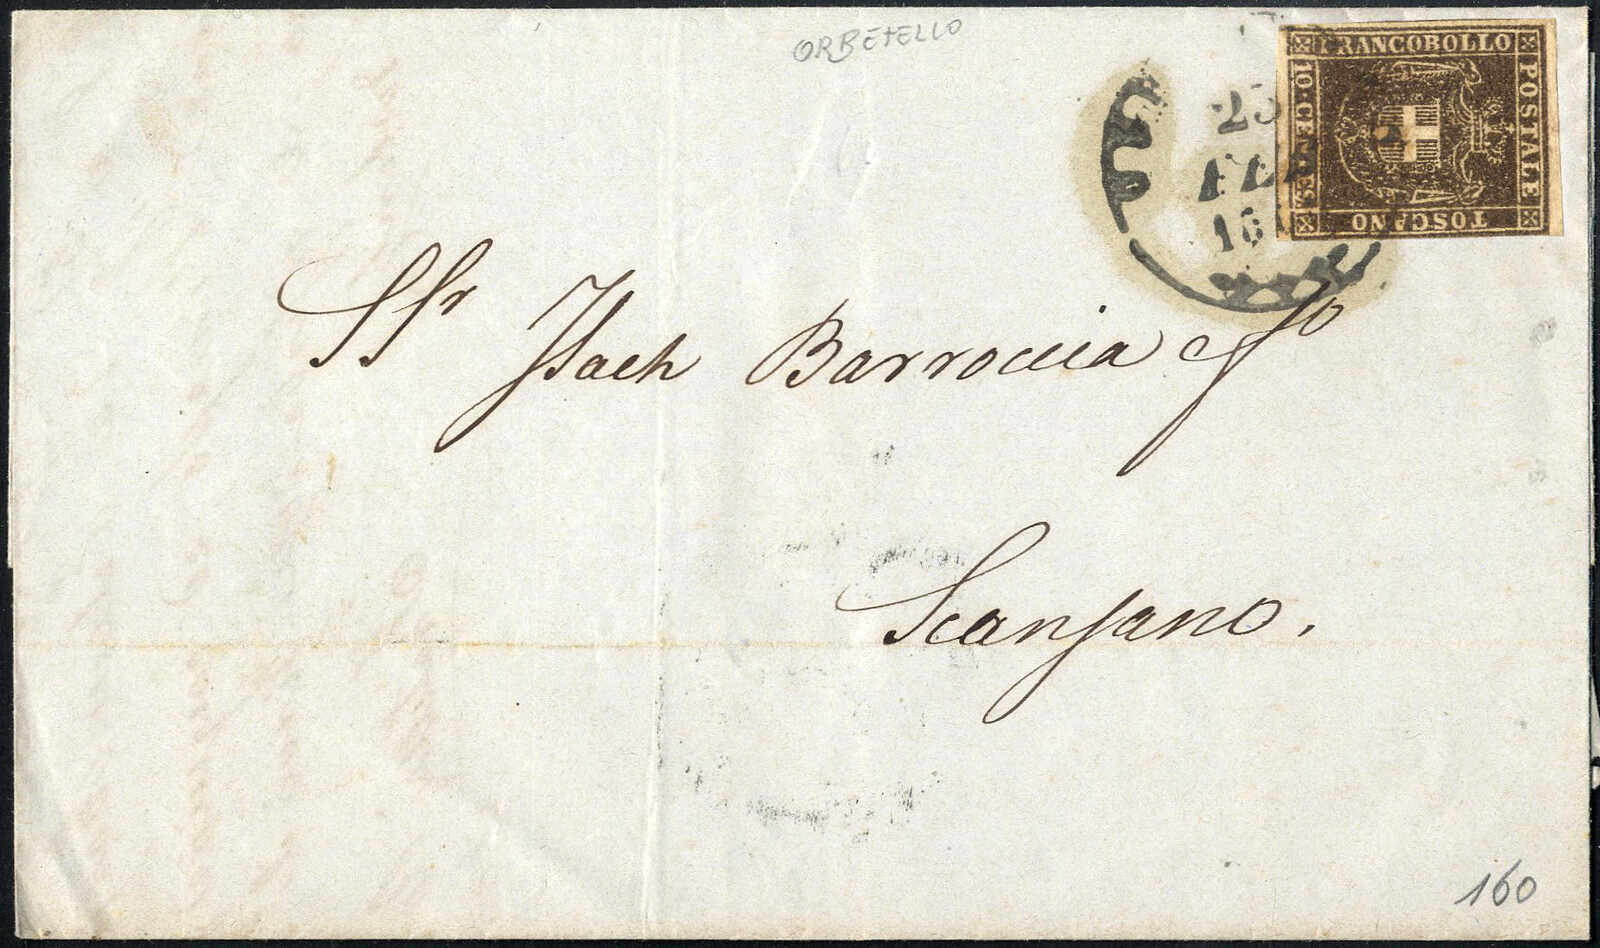 ORBETELLO
FRANCOBOLLO
POSTALE
TOSCANO
10 CENTES
23
FEB
18
SSr Isach Barroccia e fo
Scansano.
160